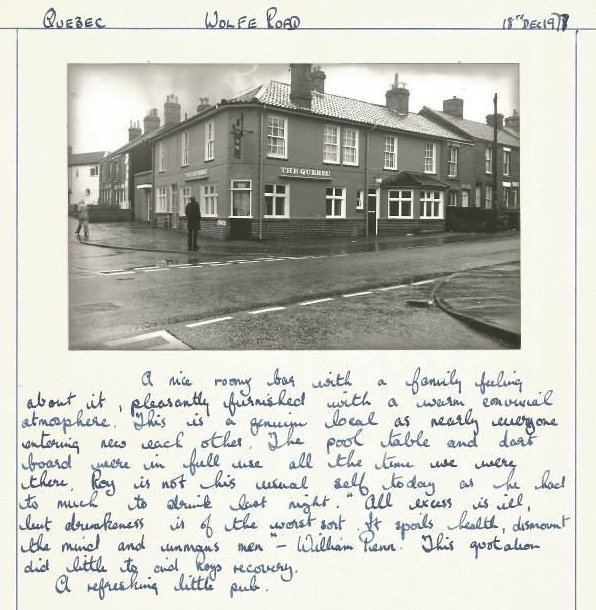 QUEBEC WOLFE ROAD 18TH DEC 1977
THE QUEBEC
A nice roomy bar with a family feeling
about it, pleasantly furnished with a warm convivial
atmosphere. This is a genuine local as nearly everyone
entering new each other. The pool table and dart
board were in full use all the time we were
there. Roy is not his usual self today as he had
to much to drink last night. "All excess is ill,
but drunkeness is of the worst sort. It spoils health, dismount
the mind and unmans men" - William Penn. This quotation
did little to aid Roys recovery.
A refreshing little pub.